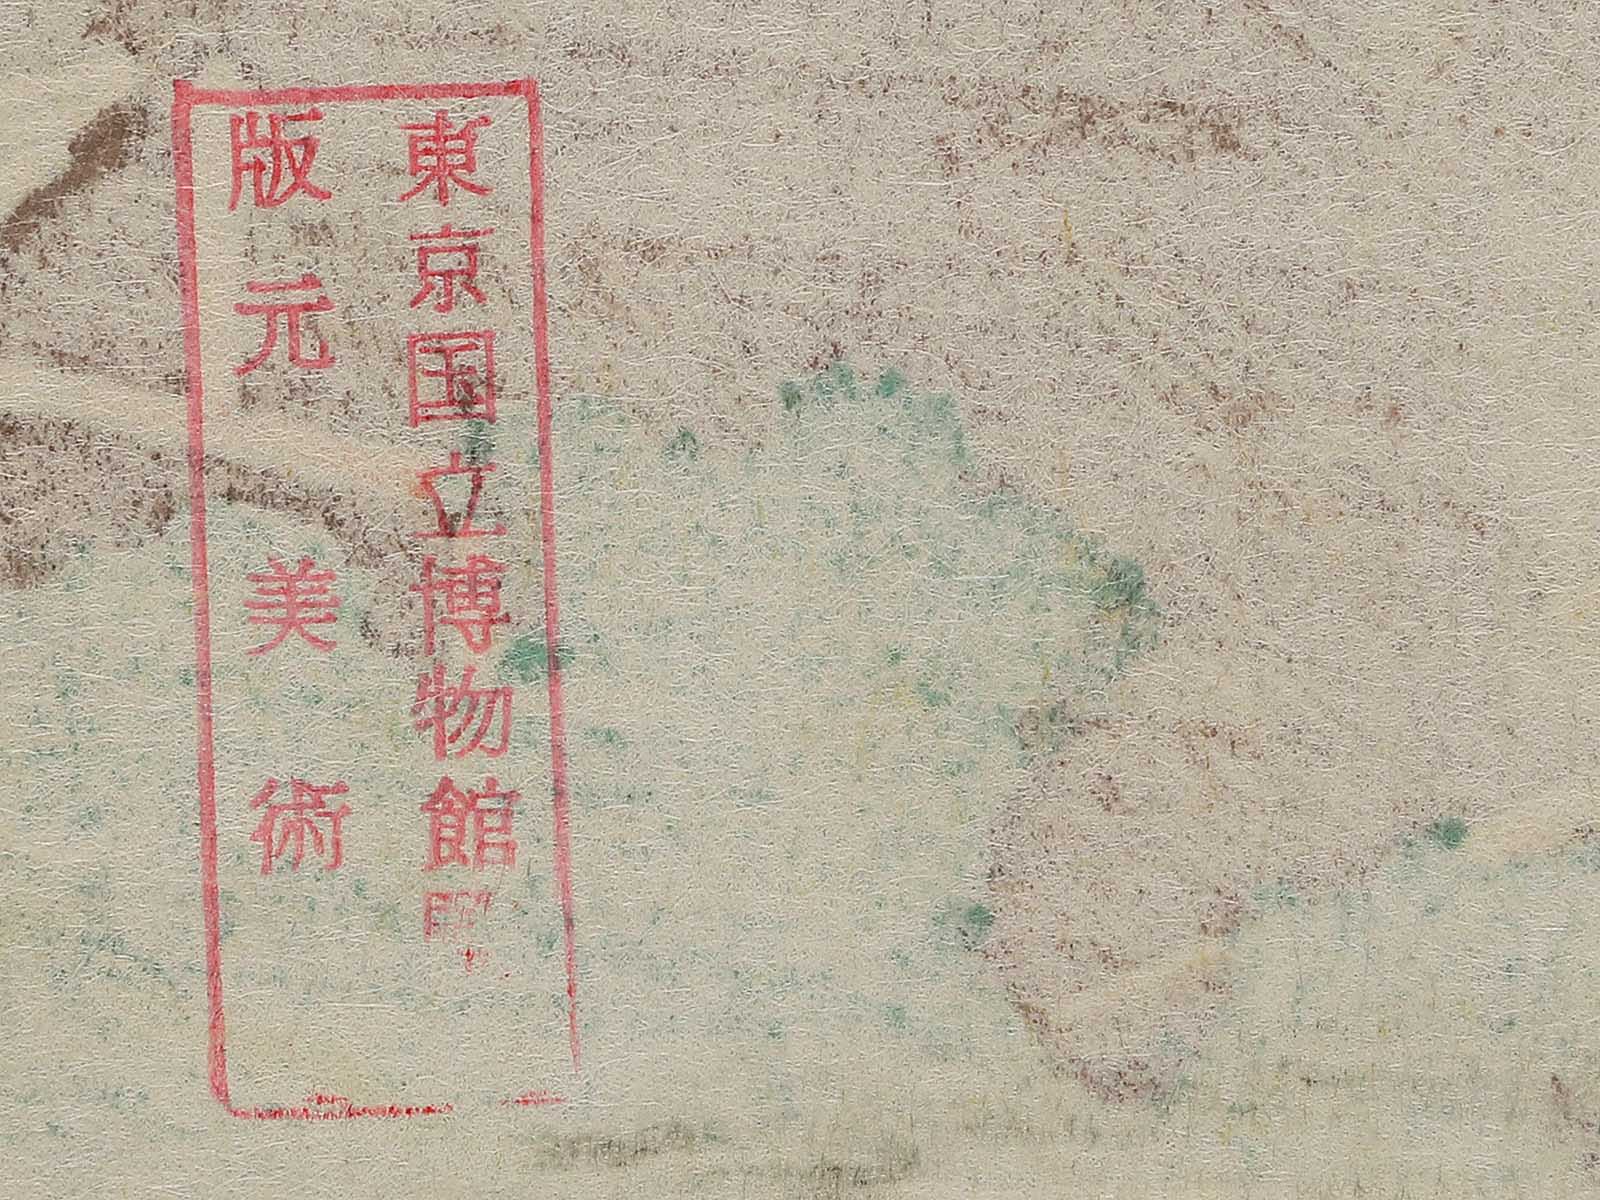 東京国立博物館
版元 美術